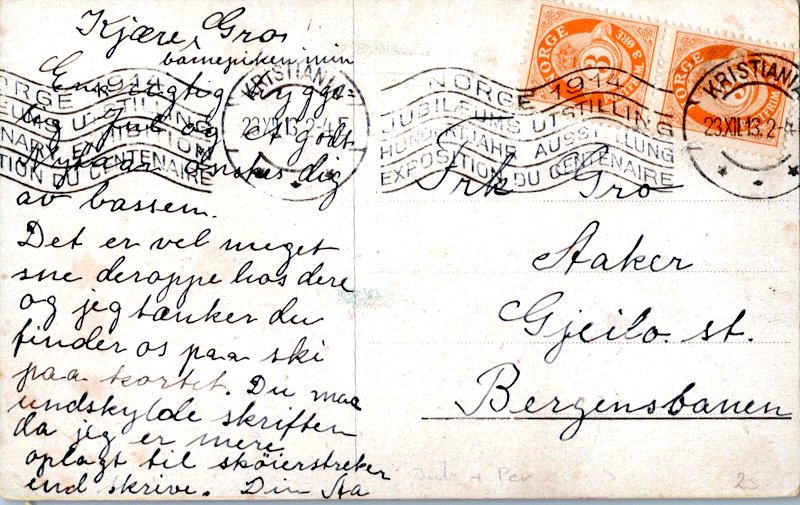 Kjære Gro!
barnepiken min
En rigtig hygge
lig Jul og et godt
Nyaar ønskes dig
av bassen.
Det er vel meget
sne deroppe hos dere
og jeg tænker du
finder os paa ski
paa kortet. Du maa
undskylde skriften
da jeg er mere
oplagt til skøierstreker
end skrive. Din Aa
NORGE 1914
JUBILÆUMS UTSTILLING
EXPOSITION DU CENTENAIRE
KRISTIANIA
23.XII.13.2-4 E
NORGE
NORGE
NORGE 1914
JUBILÆUMS UTSTILLING
HUNDERTJAHR AUSSTELLUNG
EXPOSITION DU CENTENAIRE
KRISTIANIA
23.XII.13.2-4
Frk Gro
Aaker
Gjeilo. st.
Bergensbanen
25